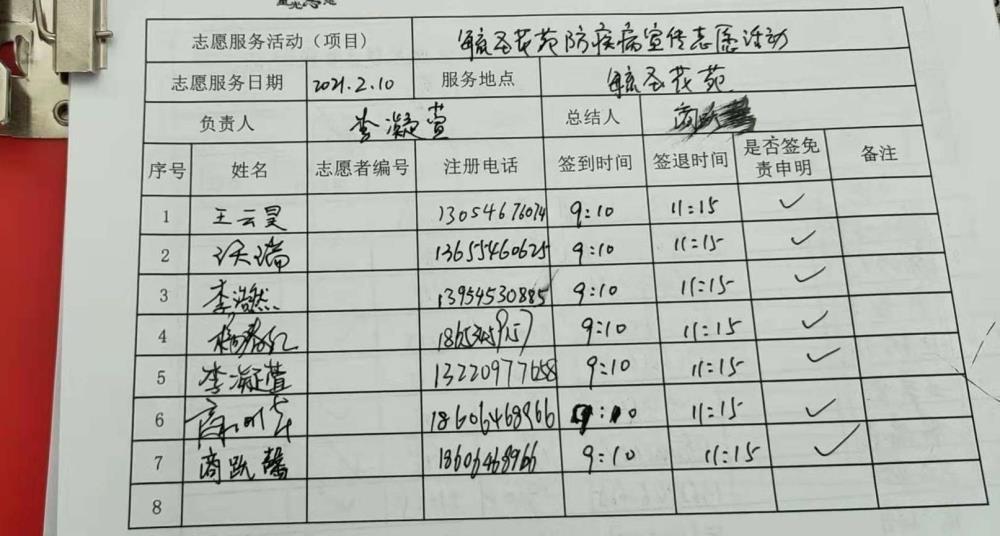 志愿服务活动（项目） 毓圣花苑防疾病宣传志愿活动
志愿服务日期 2021.2.10 服务地点 毓圣花苑
负责人 李凝萱 总结人
序号 姓名 志愿者编号 注册电话 签到时间 签退时间 是否签免责申明 备注
1 王云昊 13054676074 9:10 11:15 ✓
2 沃瑞 13655460625 9:10 11:15 ✓
3 李浩然 13954530885 9:10 11:15 ✓
4 9:10 11:15 ✓
5 李凝萱 13220977658 9:10 11:15 ✓
6 18606468966 9:10 11:15 ✓
7 商跃馨 18606468966 9:10 11:15 ✓
8